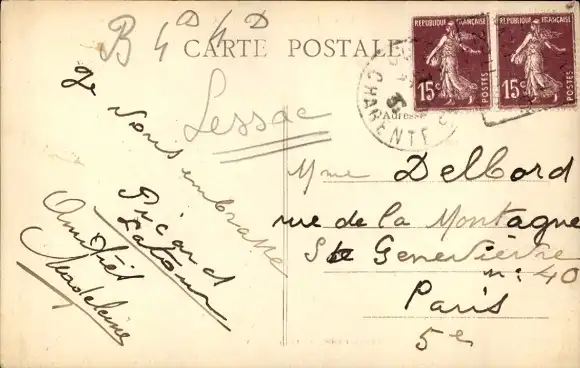 B 4D 4D
CARTE POSTALE
REPUBLIQUE FRANÇAISE
15c
POSTES
REPUBLIQUE FRANÇAISE
15c
POSTES
CHARENTE
Adresse
Lessac
Je vous embrasse
Picard
Amitiés
Madeleine
Mme Delbord
rue de la Montagne
Ste Geneviève
n: 40
Paris
5e